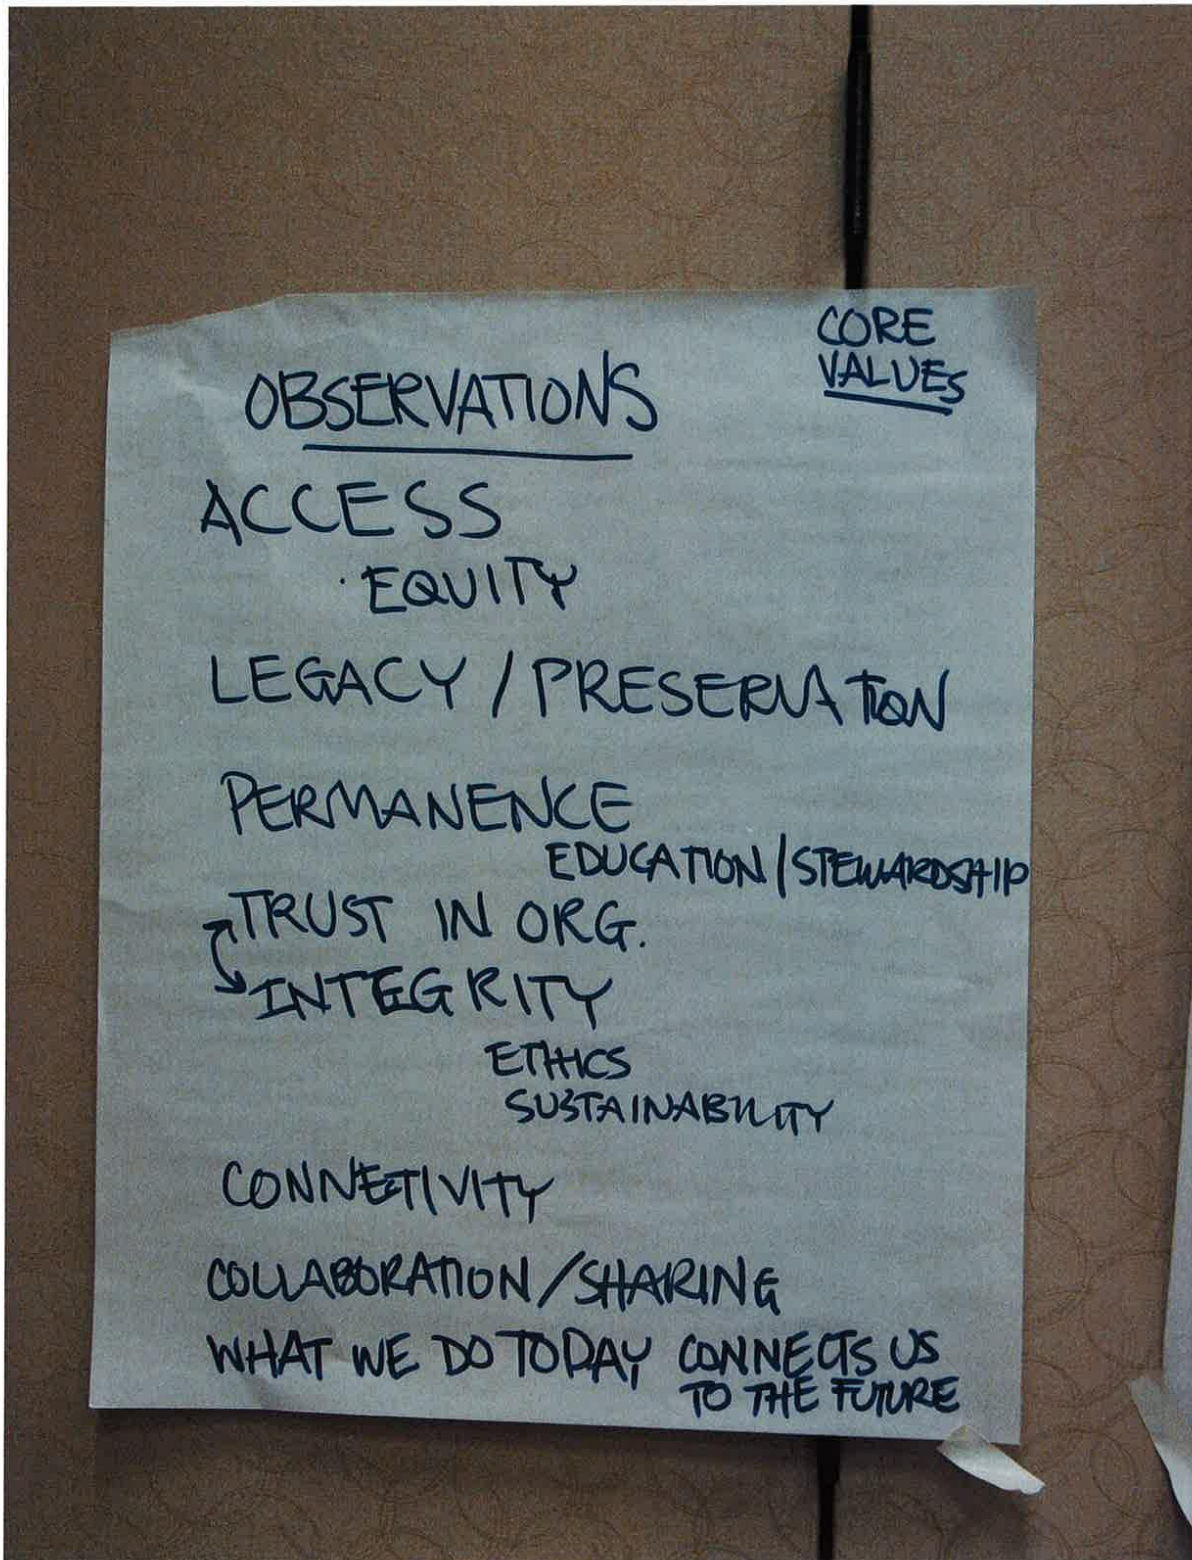 CORE
VALUES
OBSERVATIONS
ACCESS
· EQUITY
LEGACY / PRESERVATION
PERMANENCE
EDUCATION / STEWARDSHIP
TRUST IN ORG.
INTEGRITY
ETHICS
SUSTAINABILITY
CONNETIVITY
COLLABORATION / SHARING
WHAT WE DO TODAY CONNECTS US
TO THE FUTURE